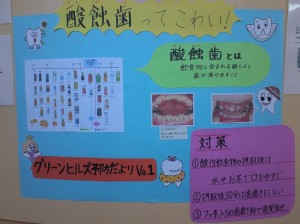 酸蝕歯ってこわい!
酸蝕歯とは
飲食物に含まれる酸により
歯が溶け出すこと
グリーンヒルズ予防だより Vo.1
対策
①酸性飲食物の摂取後は
水やお茶で口をゆすぐ
②摂取後30分は歯磨きをしない
③フッ素入りの歯磨き粉で歯質強化